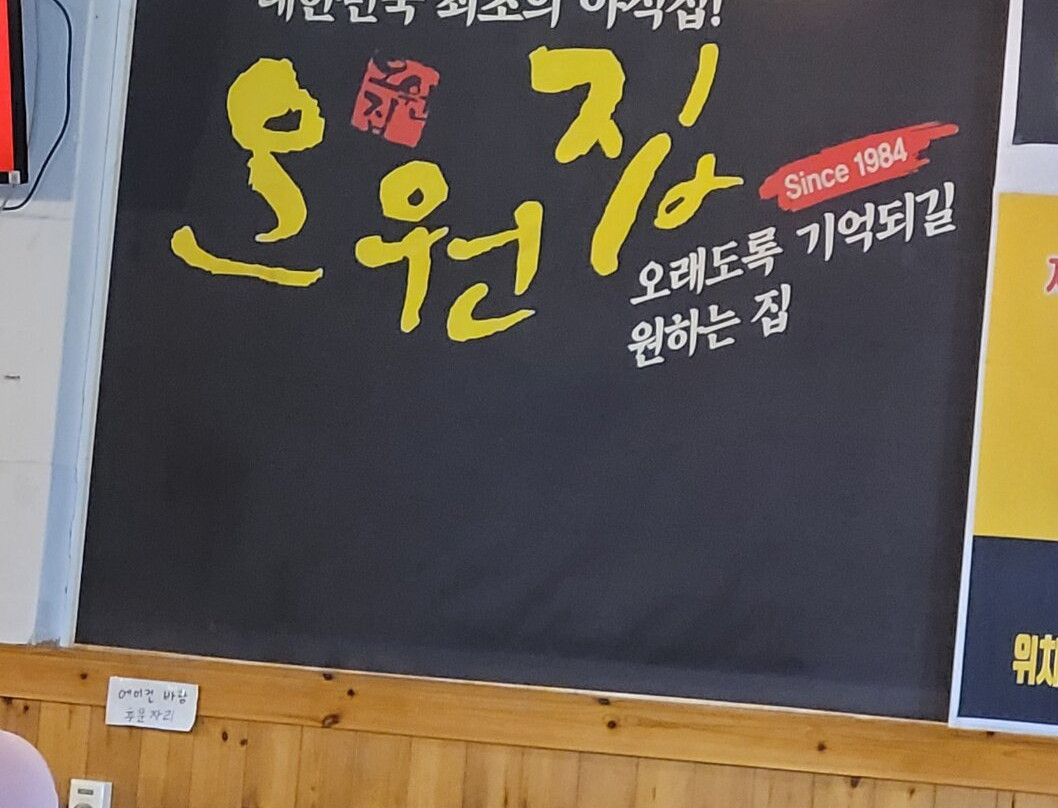 대한민국 최초의 야식집!
오원집
오원집
Since 1984
오래도록 기억되길
원하는 집
에어컨 바람
추운자리
위치